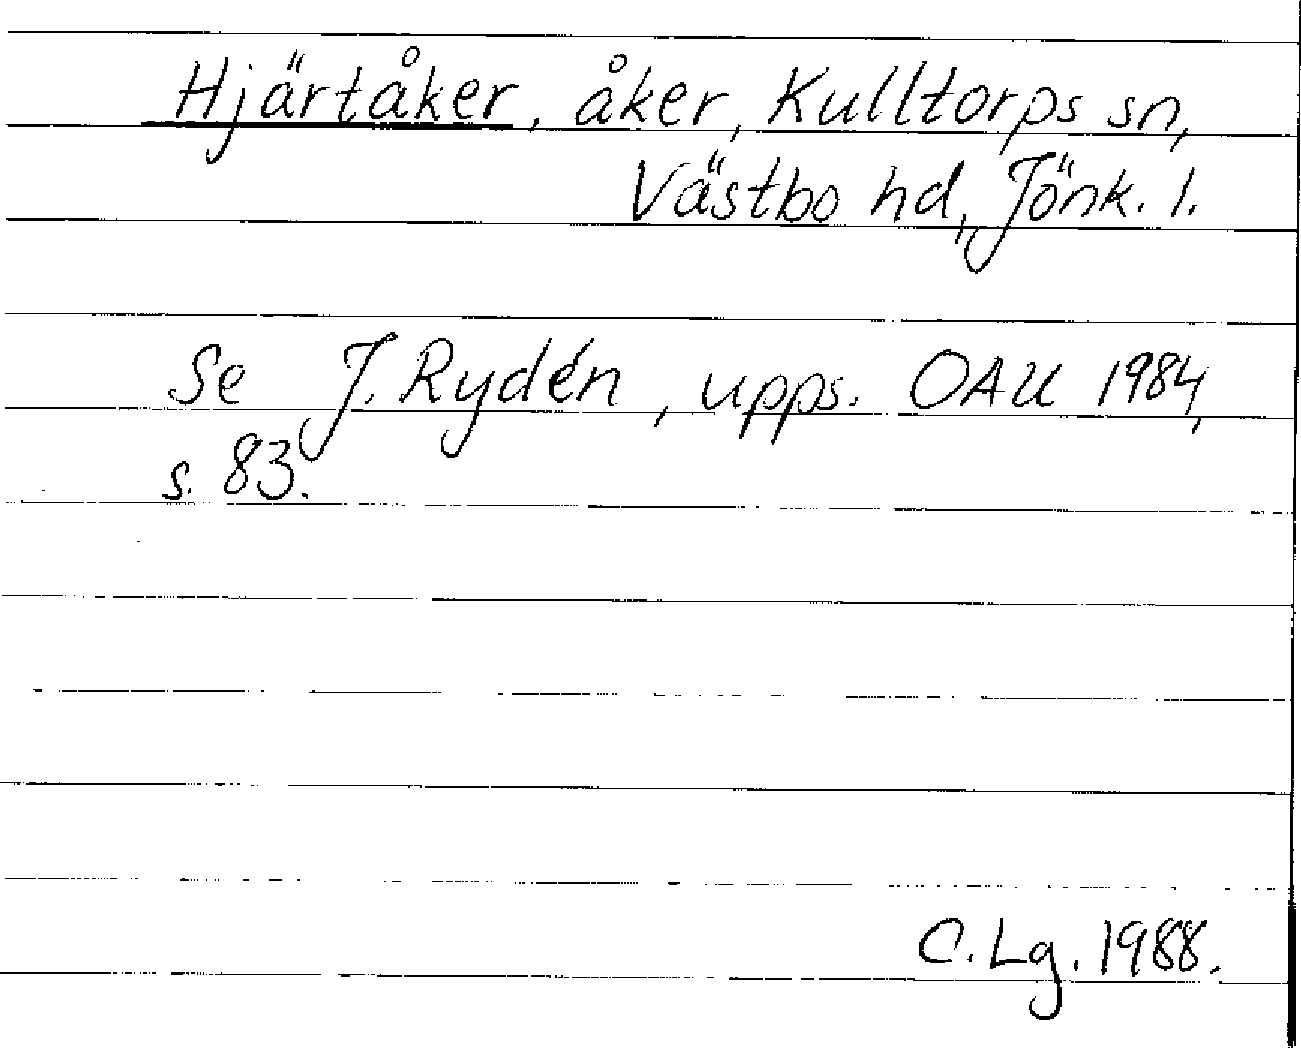 Hjärtåker, åker, Kulltorps sn,
Västbo hd, Jönk. l.
Se J. Rydén, upps. OAU 1984,
s. 83.
C. Lg. 1988.